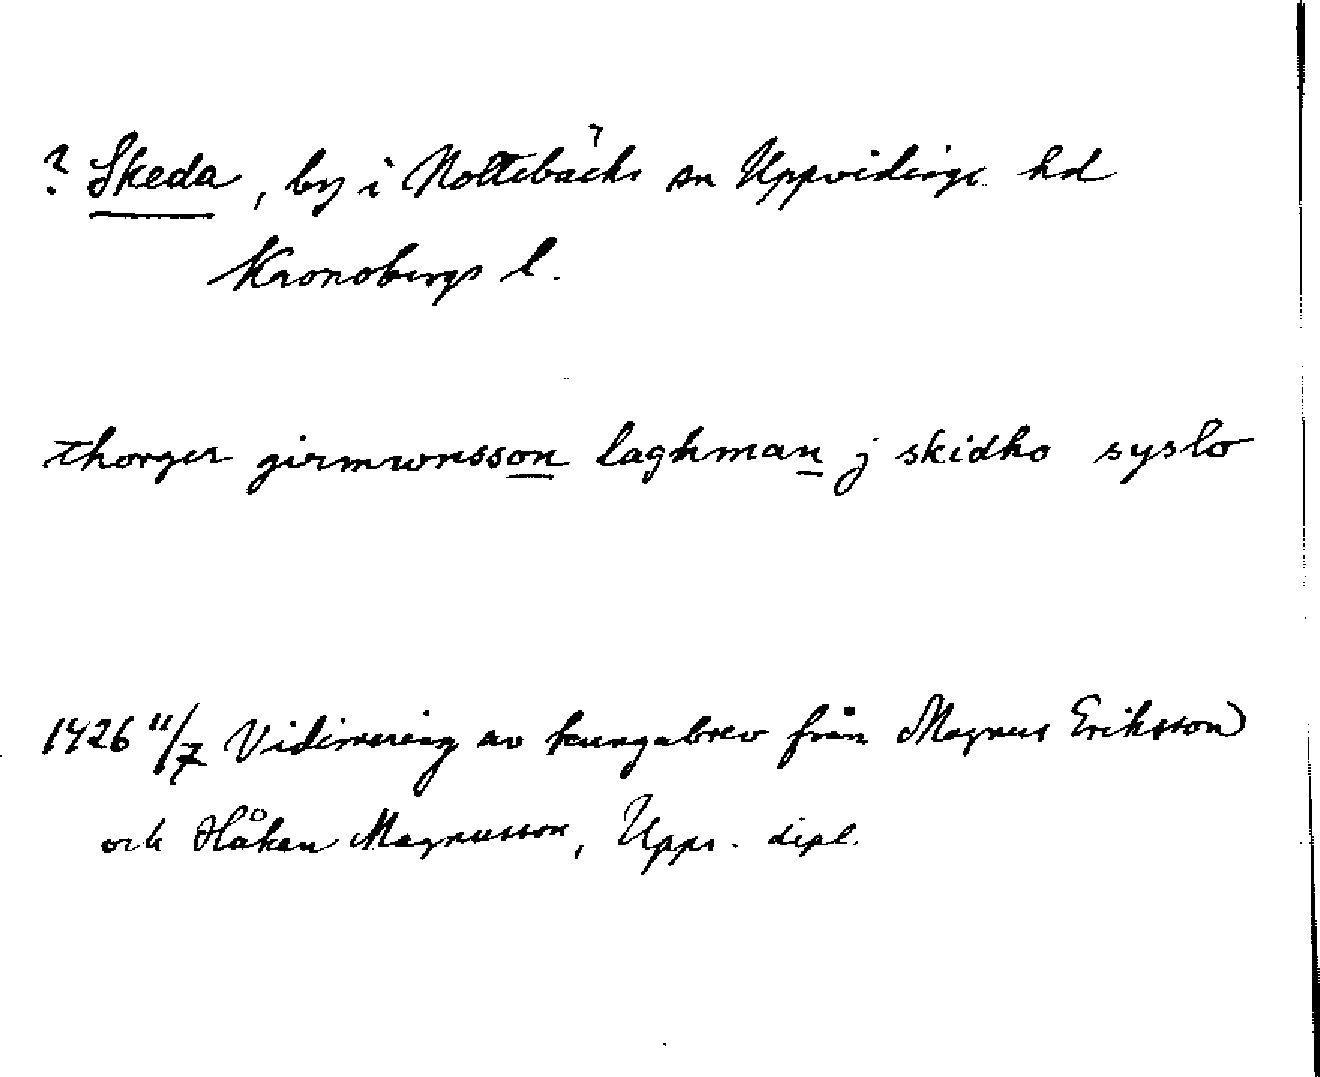 ? Skeda, by i Nottebäcks sn Uppvidinge hd
Kronobergs l.
thorger girmwnsson laghman j skidho syslo
1426 11/7 Vidimering av kungabrev från Magnus Eriksson
och Håkan Magnusson, Upps. dipl.